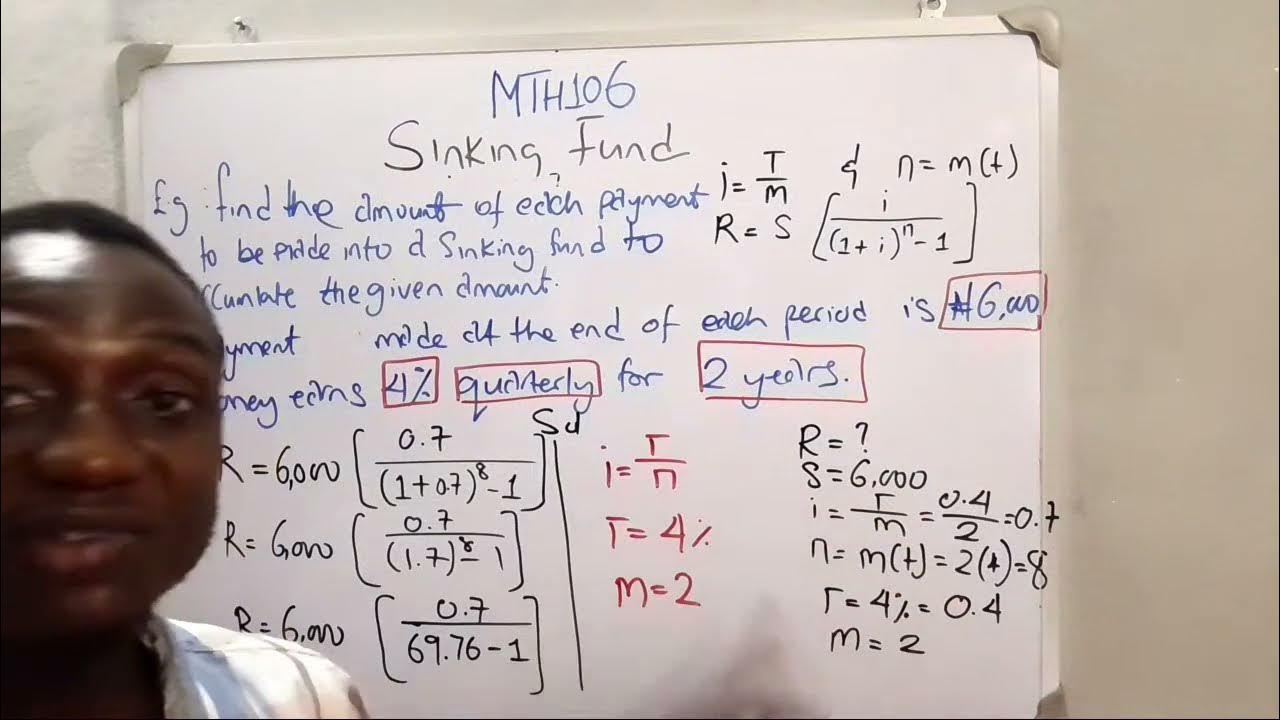 MTH106
Sinking Fund
Eg: find the amount of each payment
to be made into a Sinking fund to
ccumlate the given amount.
yment made at the end of each period is ₦6,000
oney earns 4% quarterly for 2 years.
i = r/m & n = m(t)
R = S [i/((1+i)^n - 1)]
R = 6,000 [0.7/((1+0.7)^8 - 1)]
R = 6,000 [0.7/((1.7)^8 - 1)]
R = 6,000 [0.7/(69.76 - 1)]
i = r/n
r = 4%
m = 2
R = ?
S = 6,000
i = r/m = 0.4/2 = 0.7
n = m(t) = 2(t) = 8
r = 4% = 0.4
m = 2